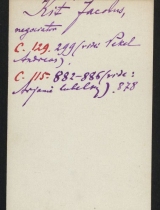 Kis Jacobus,
negociator
C. 129. 299 (vide: Pekel
Andreas).
C. 115. 882-886 (vide:
Arjani Mihaly). 878